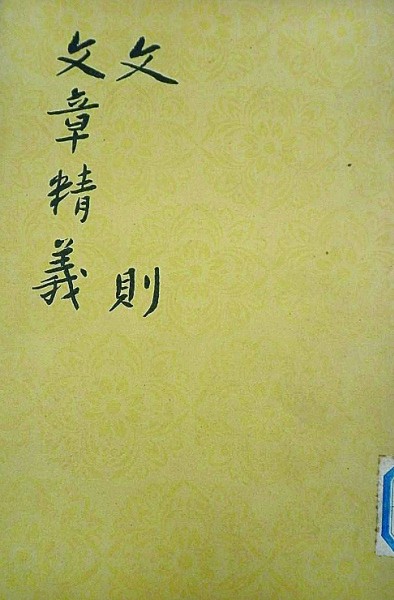 文則
文章精義